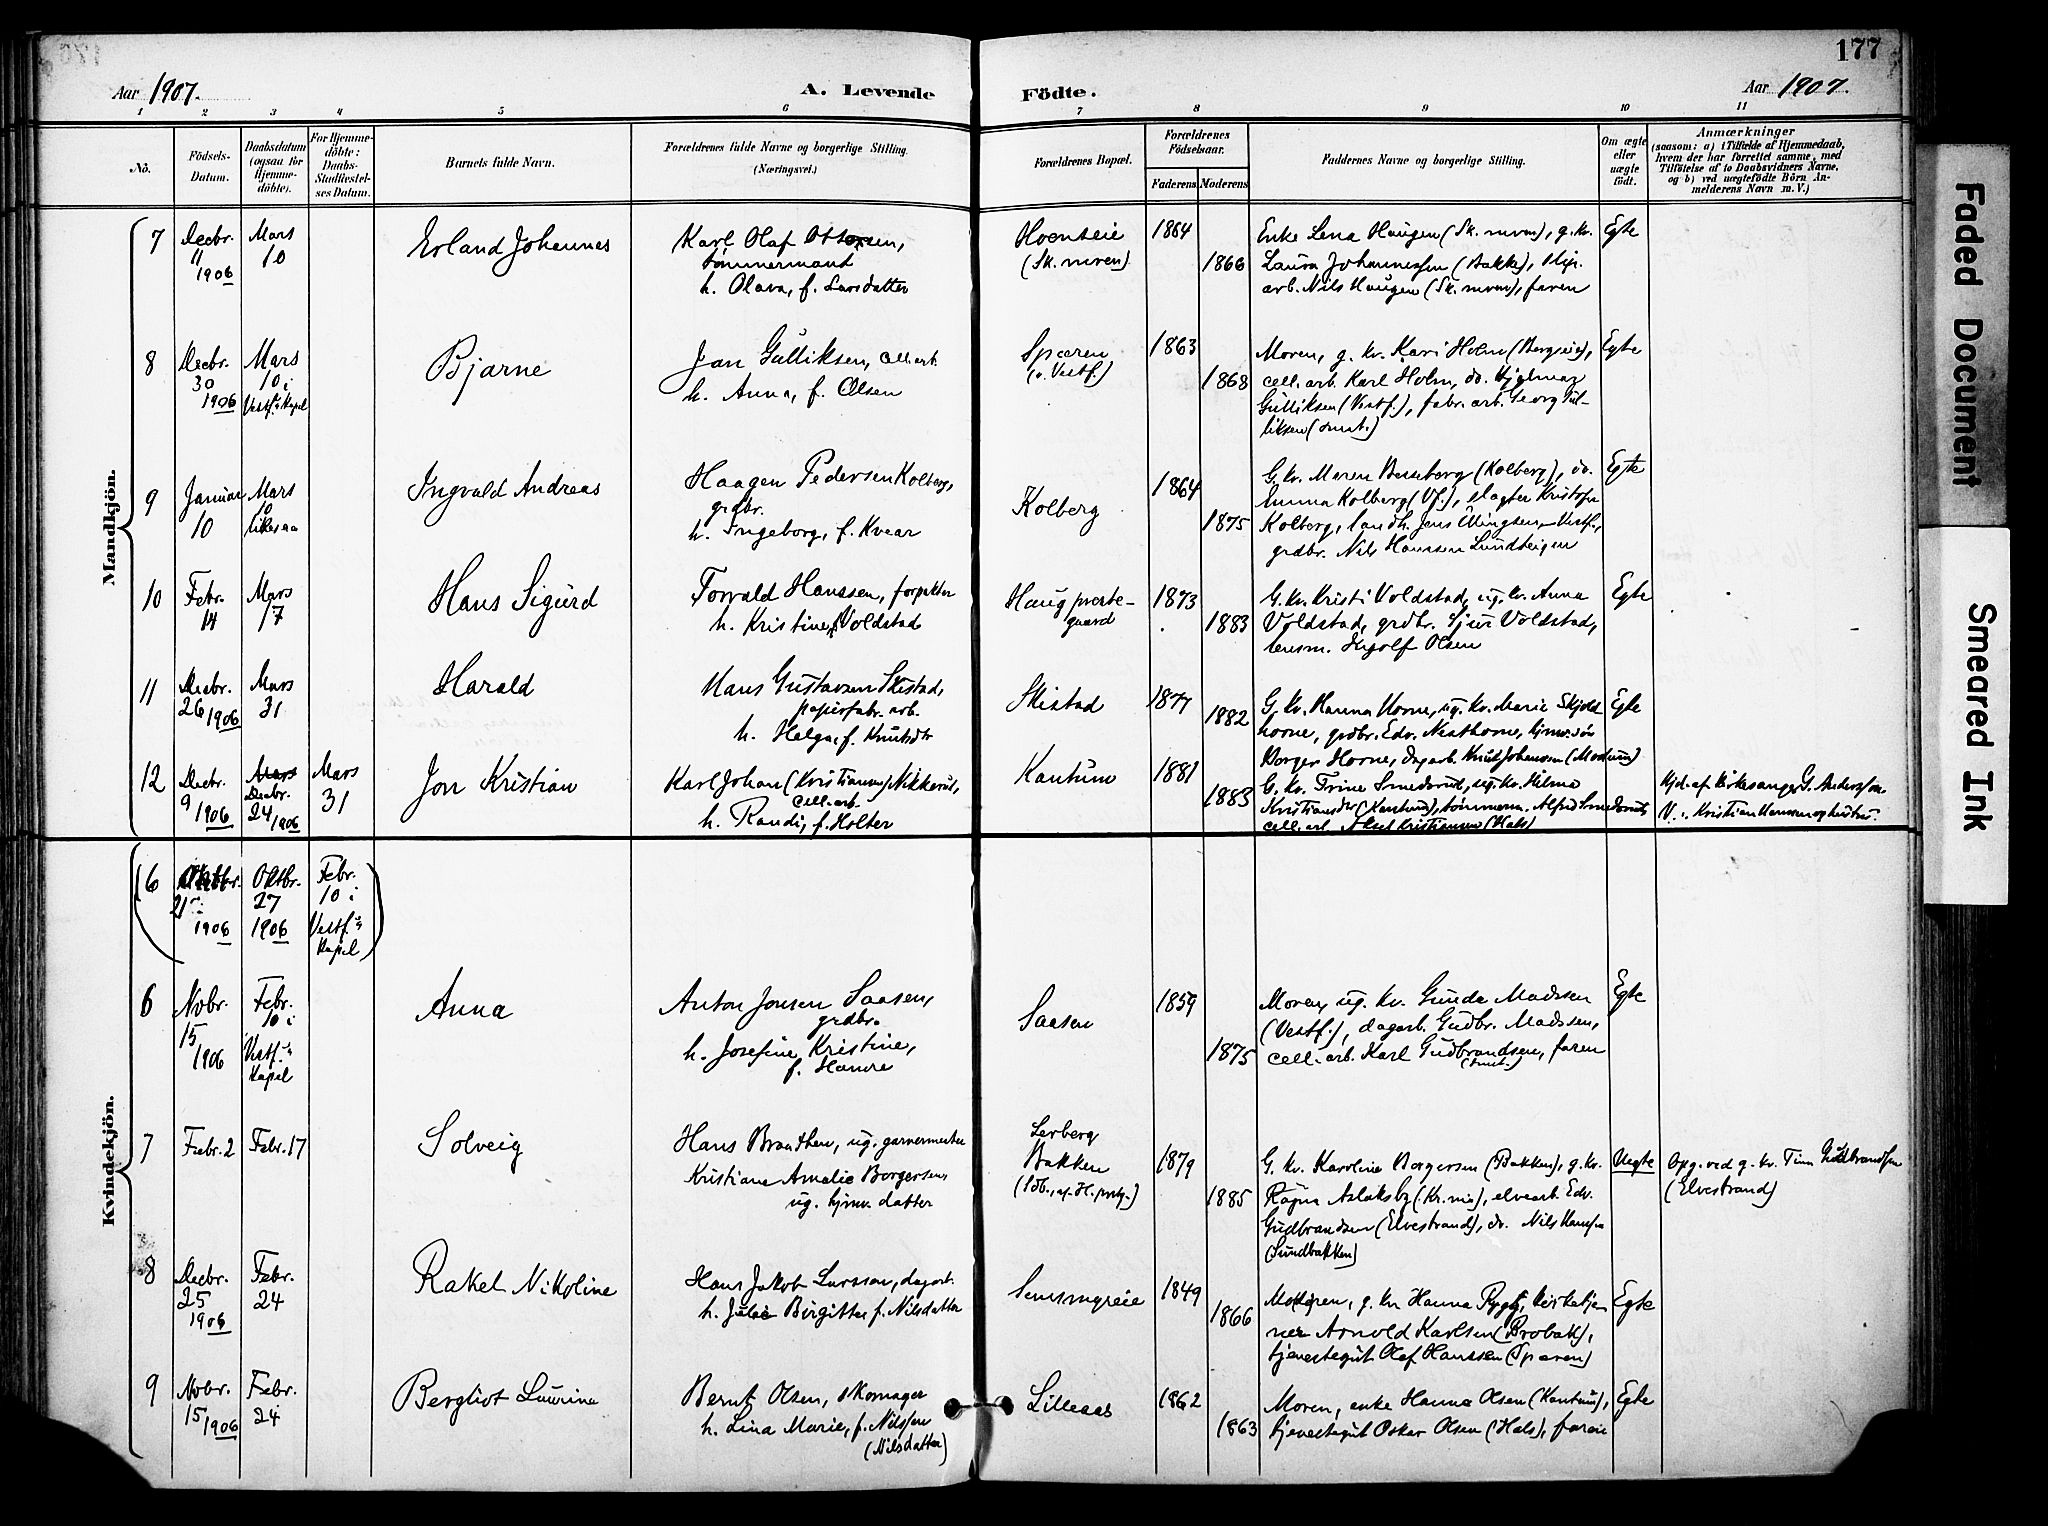 177
Aar 1907.
A. Levende Födte.
Aar 1907.
1 2 3 4 5 6 7 8 9 10 11
No.
Födsels-Datum.
Daabsdatum (ogsaa for Hjemme-döbte).
For Hjemme-döbte: Daabs-Stadfæstel-ses Datum.
Barnets fulde Navn.
Forældrenes fulde Navne og borgerlige Stilling. (Næringsvei.)
Forældrenes Bopæl.
Forældrenes Födselsaar.
Faderens Moderens
Faddernes Navne og borgerlige Stilling.
Om ægte eller uægte födt.
Anmærkninger
(saasom: a) i Tilfælde af Hjemmedaab,
hvem der har forrettet samme, med
Tilföielse af to Daabsvidners Navne,
og b) ved uægtefödte Börn An-
melderens Navn m. V.)
Mandkjön.
7 Decbr. 11 1906
Mars 10
Erland Johannes
Karl Olaf Ottosen,
tömmermand
h. Olava, f. Larsdatter
Hoenseie
(Sk. mren)
1864
1866
Enke Lena Haugen (Sk. mren), g. kv.
Laura Johannessen (Bakke),
arb. Nils Haugen (Sk. mren), faren
Egte
8 Decbr. 30 1906
Mars 10 i Vestf. Kapel
Bjarne
Jan Gulliksen, cell. arb.
h. Anna, f. Olsen
Spæren
(v. Vestf.)
1863
1868
Moren, g. kv. Kari Holm (Bergseie),
cell. arb. Karl Holm, do. Hjalmar
Gulliksen (Vestf.), fabr. arb. Georg Gul-
liksen (smst.)
Egte
9 Januar 10
Mars 10 likesaa
Ingvald Andreas
Haagen Pedersen Kolberg,
grdbr.
h. Ingeborg, f. Kvear
Kolberg
1864
1875
G. kv. Maren Besseberg (Kolberg), do.
Emma Kolberg (Vf.), slagter Kristofer
Kolberg, landh. Jens Ellingsen, Vestf.,
grdbr. Nils Hanssen Lundteigen
Egte
10 Febr. 14
Mars 17
Hans Sigurd
Torvald Hanssen, forpakter
h. Kristine, f. Voldstad
Haug preste-
gaard
1873
1883
G. kv. Kristi Voldstad, ug. kv. Anna
Voldstad, grdbr. Sjur Voldstad,
lensm. Ingolf Olsen
Egte
11 Decbr. 26 1906
Mars 31
Harald
Hans Gustavsen Skistad,
papirfabr. arb.
h. Helga, f. Knutsdtr
Skistad
1877
1882
G. kv. Hanna Horne, ug. kv. Marie Skjold
horne, grdbr. Edv. Nesthorne, hjmv. sön
Borger Horne, dagarb. Knut Johansen (Modum)
Egte
12 Decbr. 9 1906
Mars Decbr. 24 1906
Mars 31
Jon Kristian
Karl Johan (Kristiansen) Nikkerud,
cell. arb.
h. Randi, f. Holter
Kantum
1881
1883
G. kv. Trine Smedsrud, ug. kv. Hilma
Kristiansdtr (Kantum), tömmerm. Alfred Smedsrud,
cell. arb. Aksel Kristiansen (Hals)
Hjd. af kirkesanger G. Anderssen
V.: Kristian Hanssen og hustru.
Kvindekjön.
(6 Oktbr. 21 1906
Oktbr. 27 1906
Febr. 10 i Vestf. Kapel)
6 Nobr. 15 1906
Febr. 10 i Vestf. Kapel
Anna
Anton Jonsen Saasen,
grdbr.
h. Josefine Kristine,
f. Hamre
Saasen
1859
1875
Moren, ug. kv. Gunda Madssen
(Vestf.), dagarb. Gudbr. Madssen,
cell. arb. Karl Gudbrandsen, faren
(smst.)
Egte
7 Febr. 2
Febr. 17
Solveig
Hans Braathen, ug. garvermester
Kristiane Amalie Borgersen,
ug. hjmv. datter
Lerberg
Bakken
1879
1885
G. kv. Karoline Borgersen (Bakken), g. kv.
Ragna Aslaksby (Kr.nia), elvearb. Edv.
Gudbrandsen (Elvestrand), do. Nils Hansen
(Sundbakken)
Uegte
Opg. ved g. kv. Tina Gudbrandsen
(Elvestrand)
8 Decbr. 25 1906
Febr. 24
Rakel Nikoline
Hans Jakob Larssen, dagarb.
h. Julie Birgitte, f. Nilsdatter
Semsmyreie
1849
1866
Moren, g. kv. Hanna Rygh, kirketje-
ner Arnold Karlsen (Brobak),
tjenestegut Olaf Hanssen (Spæren)
Egte
9 Nobr. 15 1906
Febr. 24
Bergliot Laurina
Bernt Olsen, skomager
h. Lina Marie, f. Nilssen
(Nilsdatter)
Lilleaas
1862
1863
Moren, enke Hanna Olsen (Kantum),
tjenestegut Oskar Olsen (Hals), faren
Egte
Faded Document
Smeared Ink